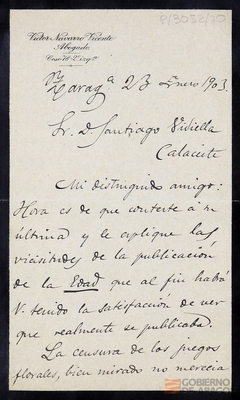 P/3052/70
Victor Navarro Vicente
Abogado
Coso 76-2º izqª
Zaragª 23 Enero 1903.
Sr. D. Santiago Vidiella
Calaceite
Mi distinguido amigo:
Hora es de que conteste a su
última y le esplique las
vicisitudes de la publicación
de la Edad que al fin habrá
V. tenido la satisfacción de ver
que realmente se publicaba.
La censura de los juegos
florales, bien mirado no merecia
GOBIERNO
DE ARAGON